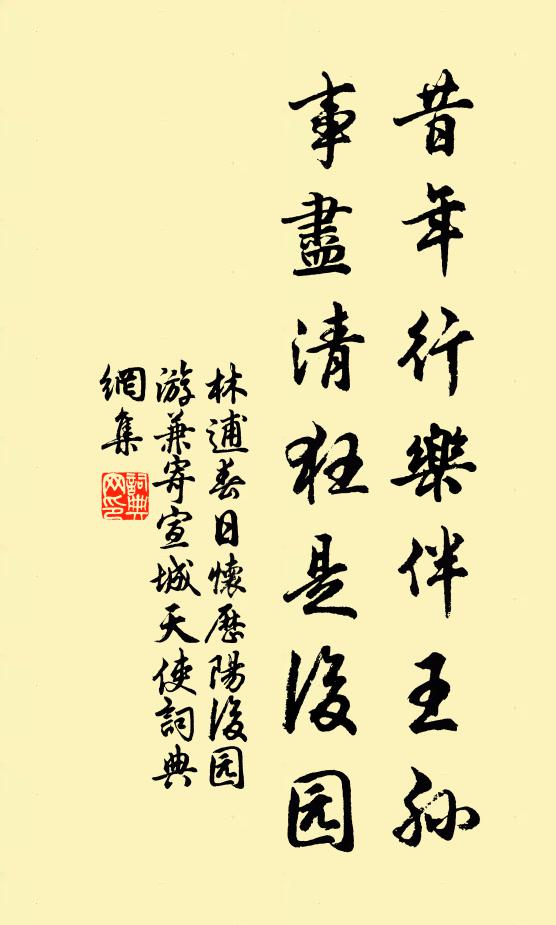 昔年行樂伴王孫
事盡清狂是後园
林逋春日懷歷陽後园
游兼寄宣城天使詞典
網集
詞典
网印